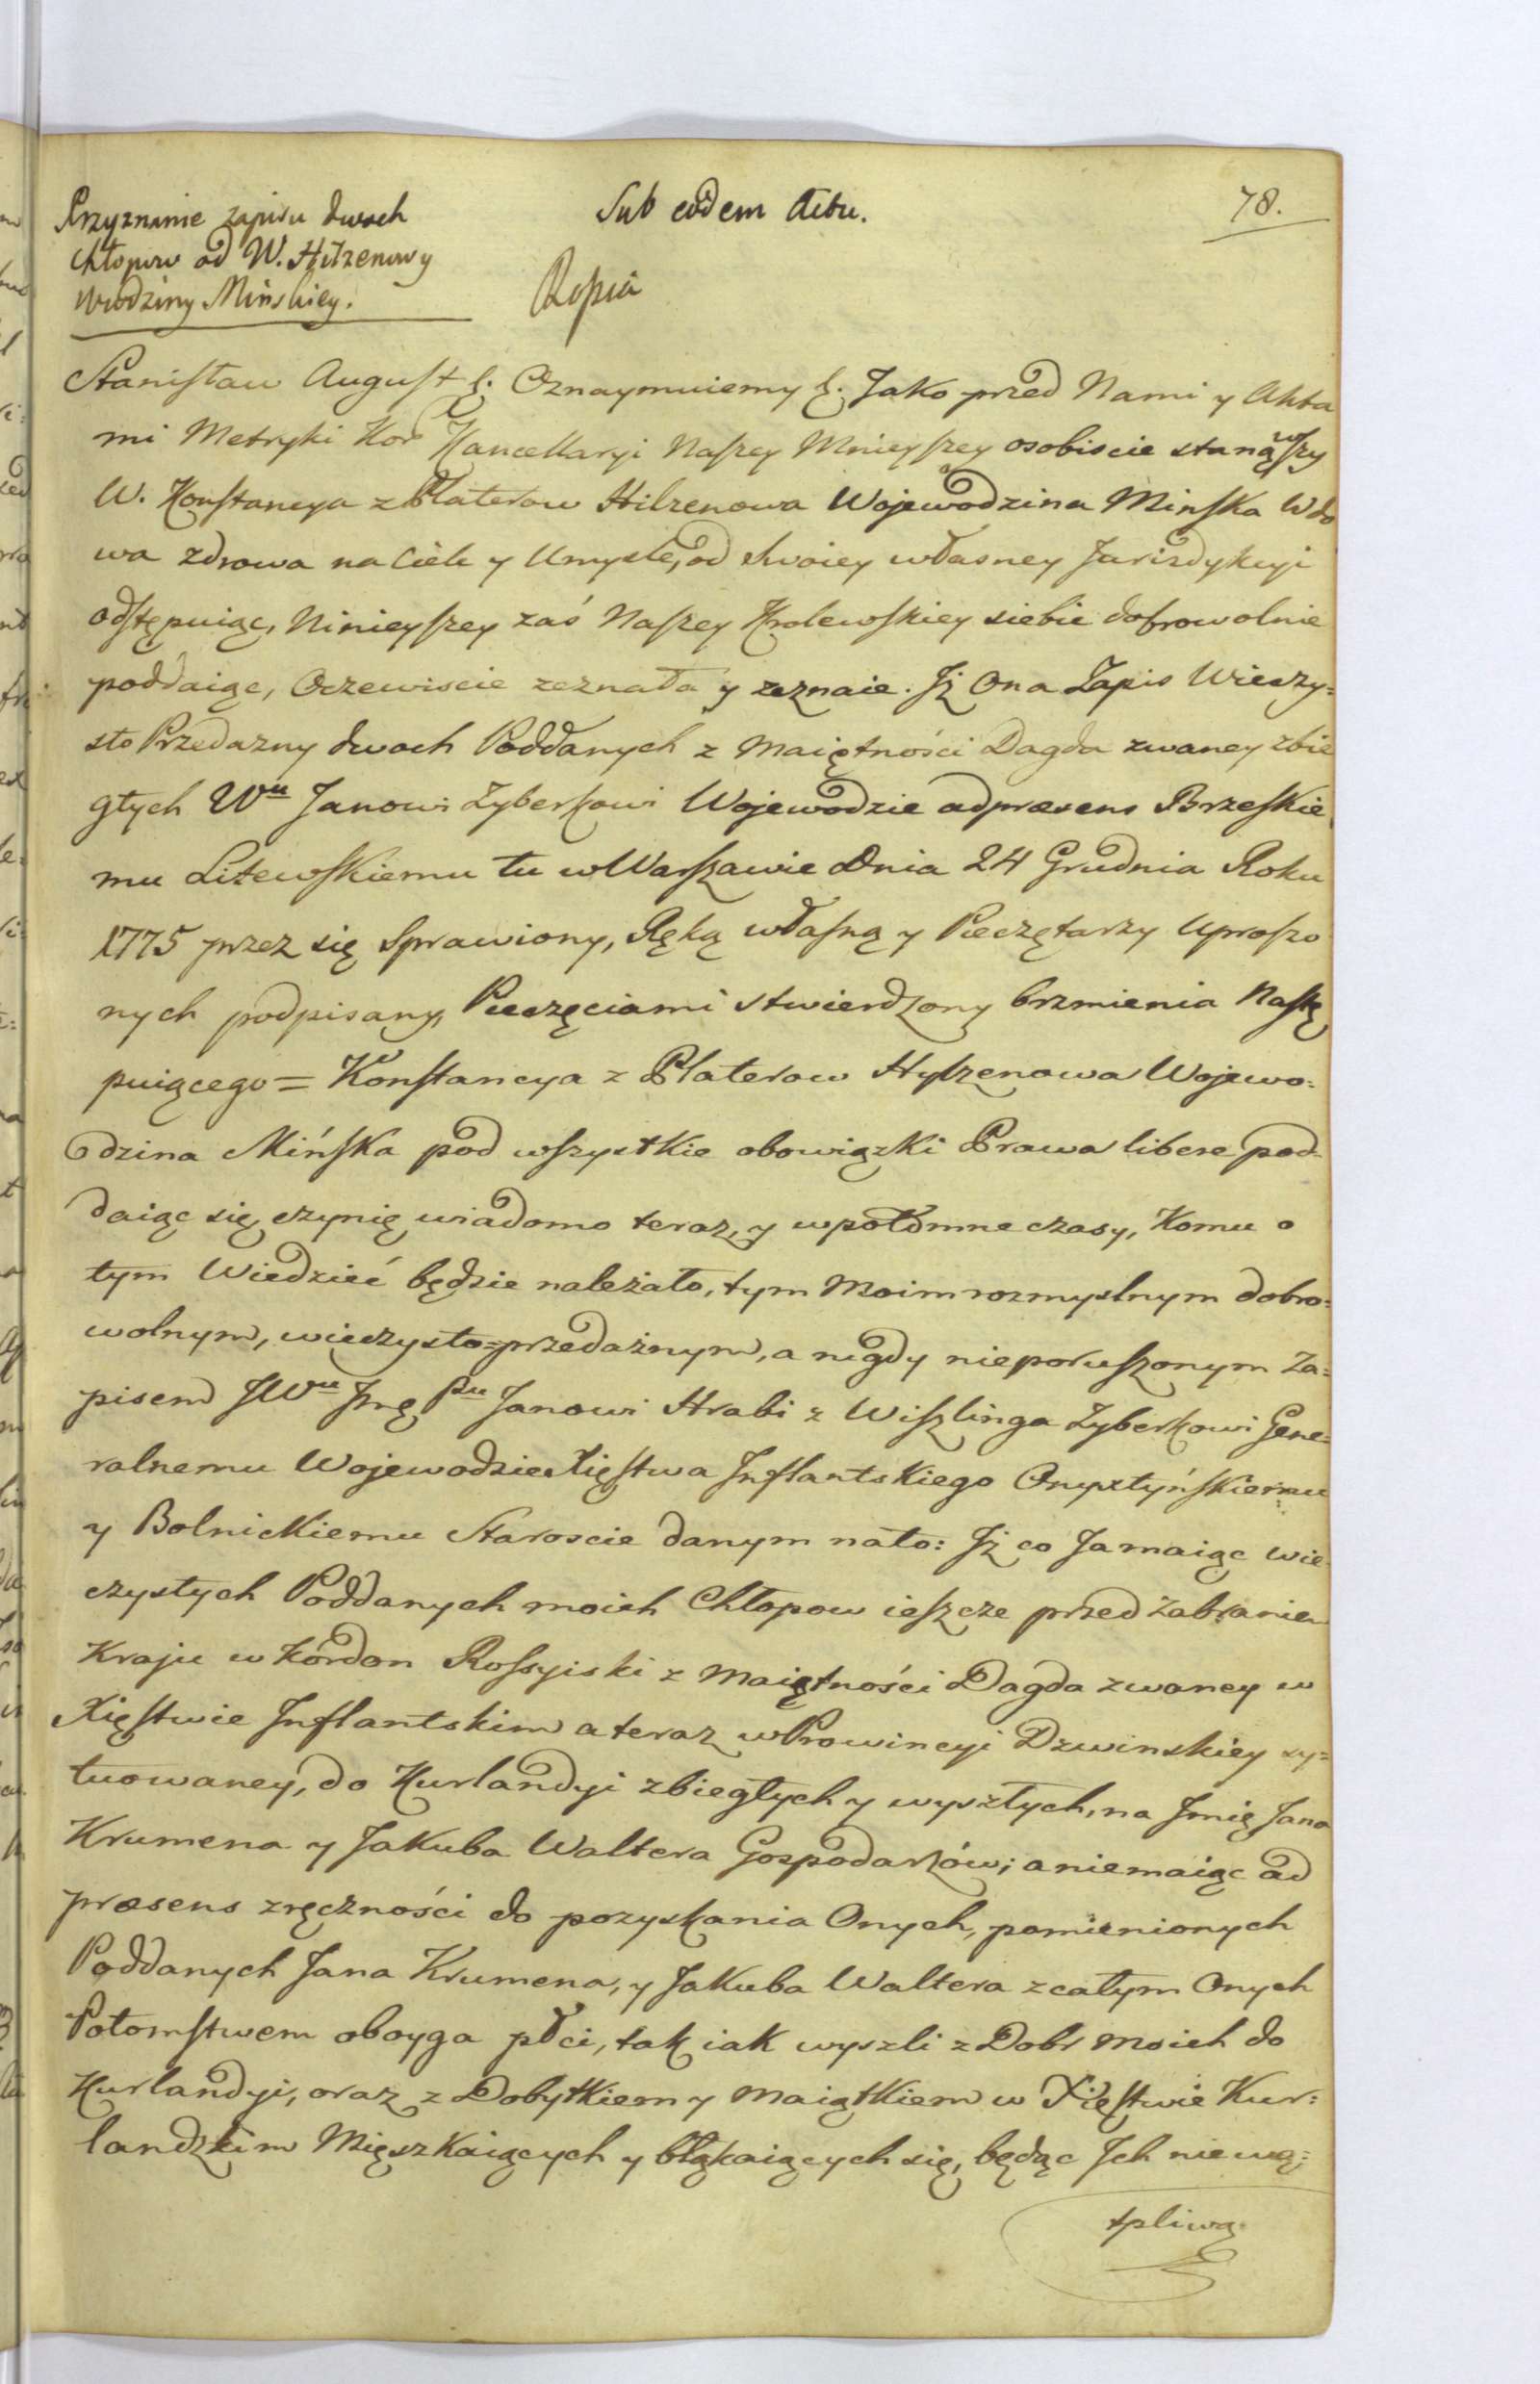 78.
Sub eodem Actu.
Przyznanie zapisu dwoch
Chłopow od W. Hilzenowy
Wwdziny Minskiey.
Kopia
Stanisław August &. Oznaymuiemy &. Jako przed Nami y Akta
mi Metryki Kor Kancellaryi Naszey Mnieyszey osobiscie stanąwszy
W. Konstancya z Platerow Hilzenowa Wojewodzina Minska Wdo
wa zdrowa na Ciele y Umysle, od Swoiey własney Jurisdykcyi
odstępuiąc, Ninieyszey zaś Naszey Krolewskiey siebie dobrowolnie
poddaiąc, Oczewiscie zeznała y zeznaie. Jż Ona Zapis Wieczy=
sto Przedazny dwoch Poddanych z Maiętności Dagda zwaney zbie
głych Wu Janowi Zyberkowi Wojewodzie ad præsens Brzeskie
mu Litewskiemu tu w Warszawie Dnia 24 Grudnia Roku
1775 przez się Sprawiony, Ręką własną y Pieczętarzy Uproszo
nych podpisany, Pieczęciami stwierdzony brzmienia Nastę
puiącego = Konstancya z Platerow Hylzenowa Wojewo=
dzina Mińska pod wszystkie obowiązki Prawa libere pod=
daiąc się czynię wiadomo teraz, y w potomne czasy, Komu o
tym Wiedzieć będzie należało, tym Moim rozmyslnym dobro=
wolnym, wieczysto=przedażnym, a nigdy nieporuszonym Za=
pisem JWu Jmę Pu Janowi Hrabi z Wiszlinga Zyberkowi Gene=
ralnemu Wojewodzie Xięstwa Inflantskiego Onyxtyńskiemu
y Bolnickiemu Staroscie danym na to: Jż co Ja maiąc wie
czystych Poddanych moich Chłopow ieszcze przed Zabraniem
Kraju w Kordon Rossyiski z Maiętności Dagda zwaney w
Xięstwie Inflantskim a teraz w Prowincyi Dzwinskiey sy=
tuowaney, do Kurlandyi zbiegłych y wyszłych, na Jmię Jana
Krumena y Jakuba Waltera Gospodarzów; a niemaiąc ad
præsens zręczności do pozyskania Onych, pomienionych
Poddanych Jana Krumena, y Jakuba Waltera z całym Onych
Potomstwem oboyga płci, tak iak wyszli z Dobr moich do
Kurlandyi, oraz z Dobytkiem y Maiątkiem w Xięstwie Kur=
landzkim Mięszkaiących y błąkaiących się, będąc Jch niewą=
tpliwą